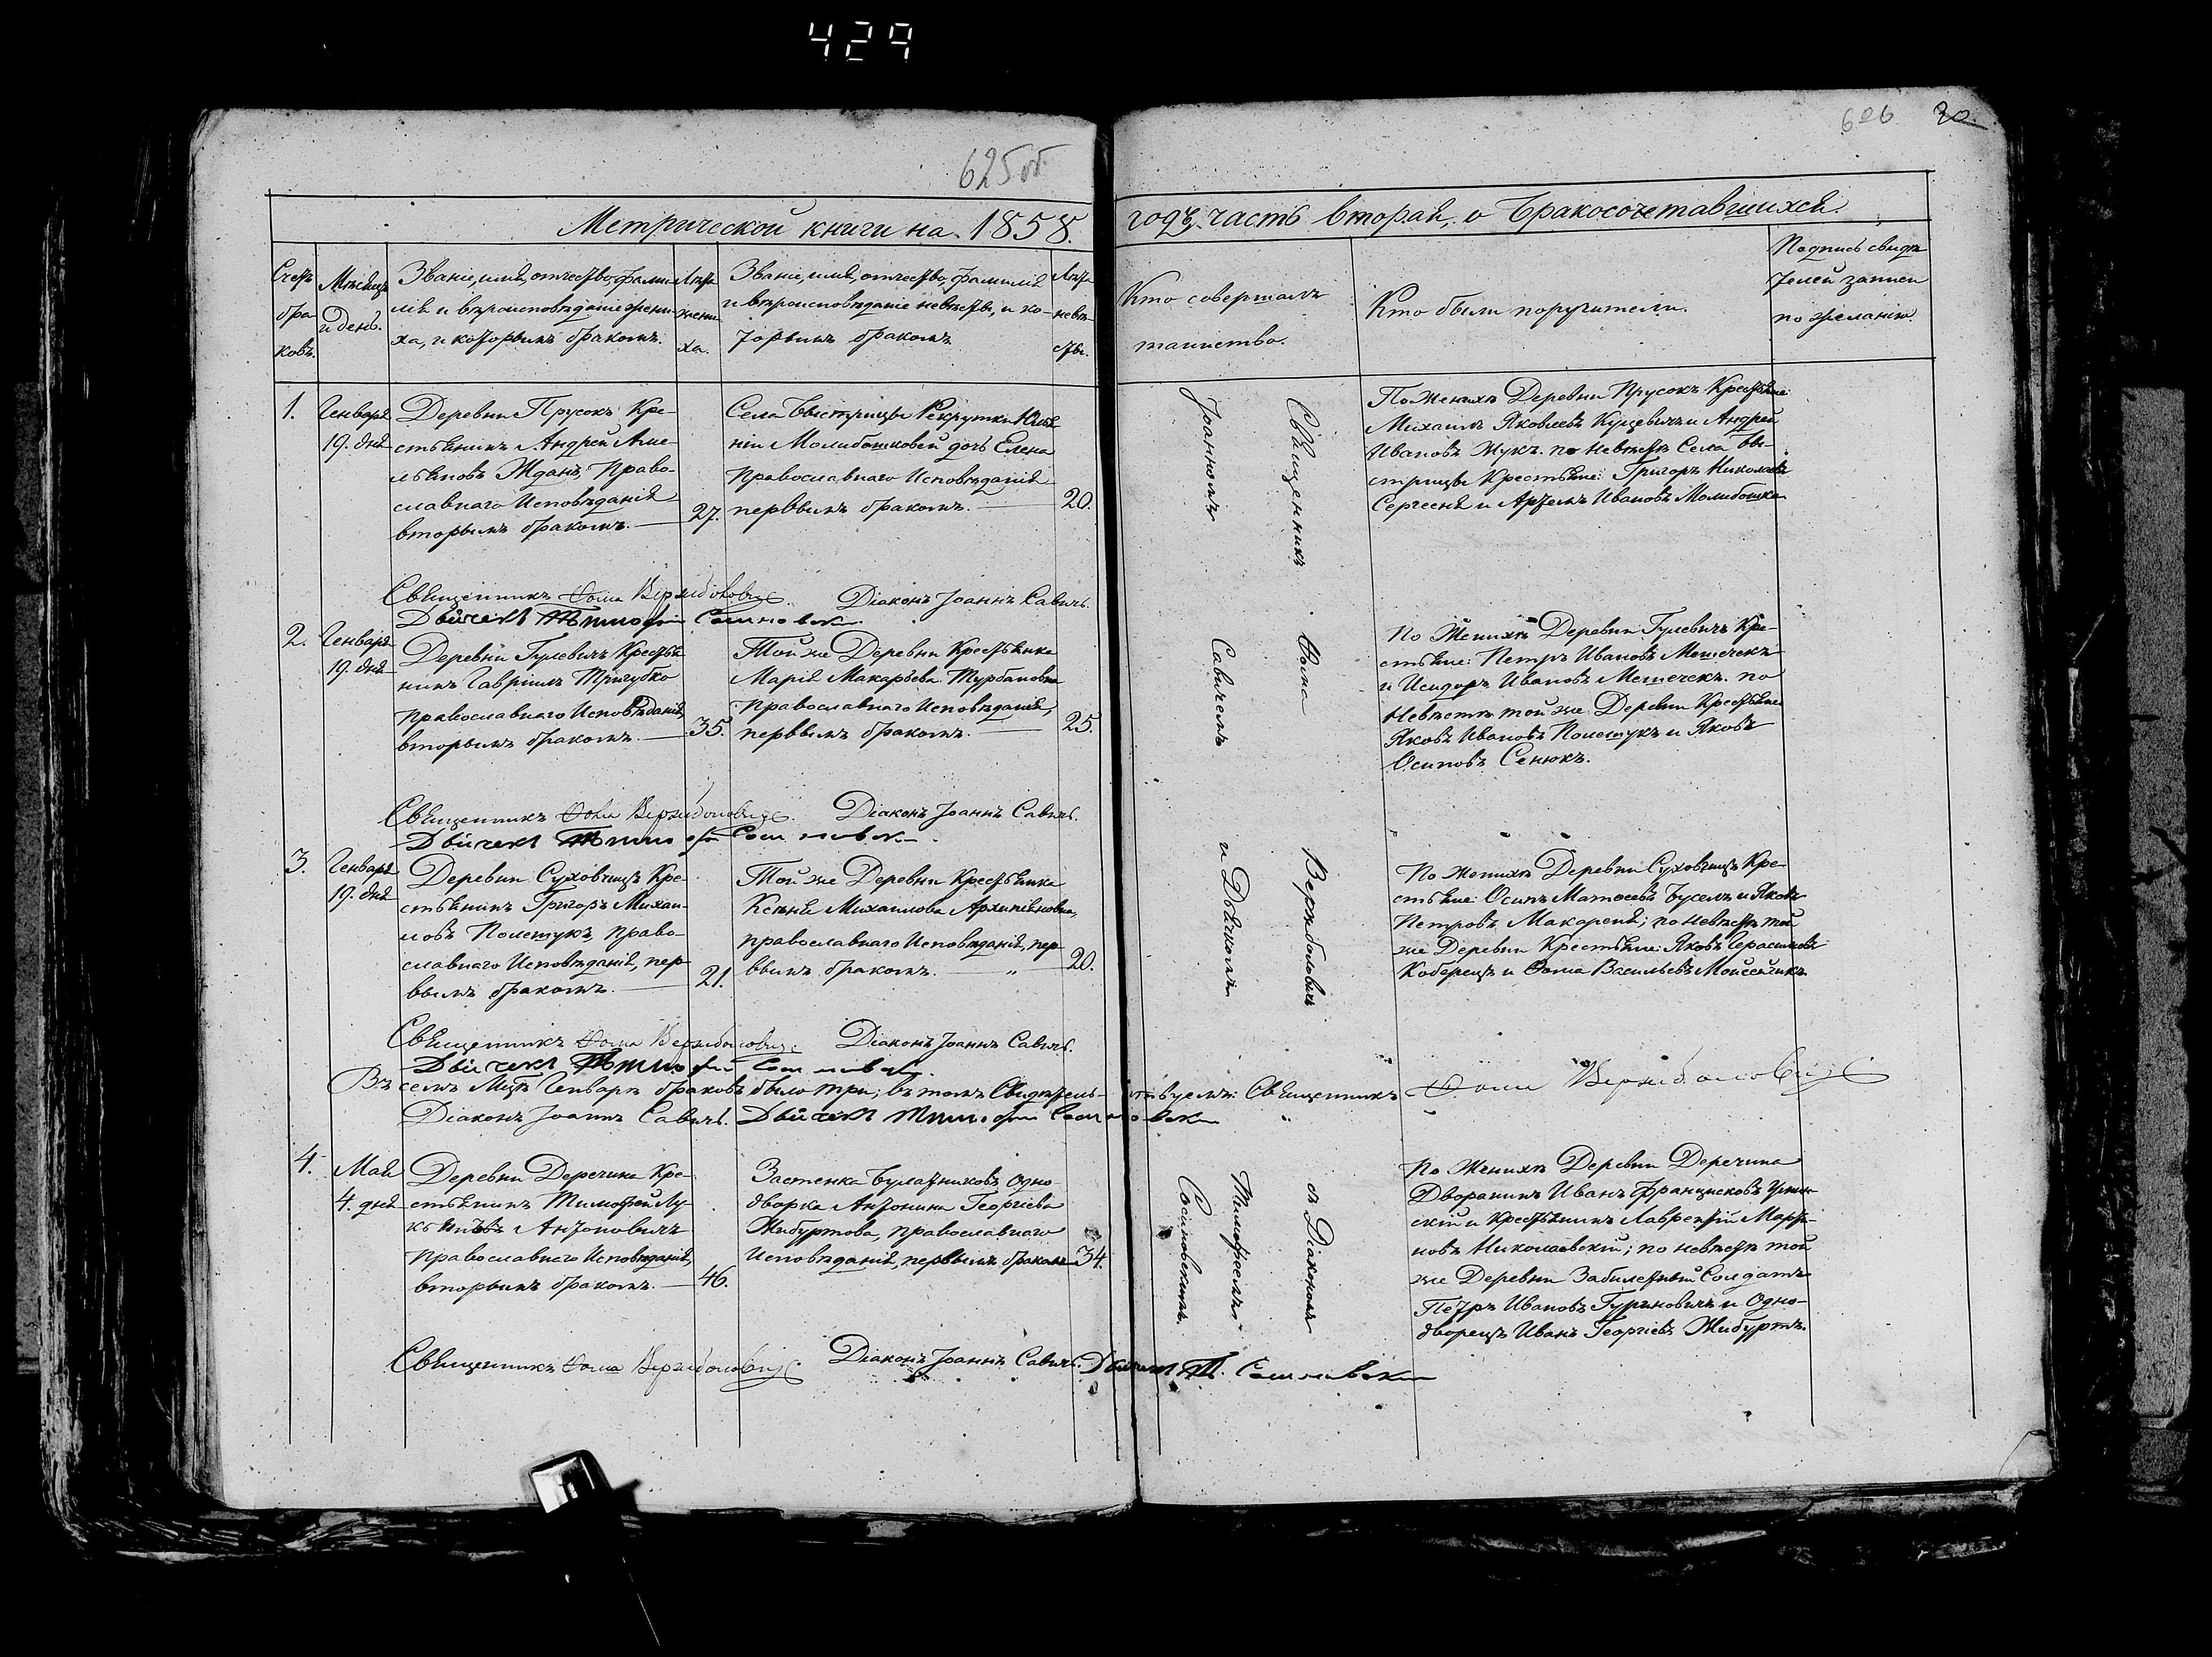 429
625 об
626 20
Метрической книги на 1858.
годъ, часть вторая, о бракосочетавшихся.
Счетъ бра-
ковъ.
Мѣсяцъ
и день.
Званіе, имя, отчество, фами-
лія и вѣроисповѣданіе жени-
ха, и которымъ бракомъ.
Лѣта
жени-
ха.
Званіе, имя, отчество, фамилія
и вѣроисповѣданіе невѣсты, и ко-
торымъ бракомъ
Лѣта
невѣ-
сты.
Кто совершалъ
таинство.
Кто были поручители.
Подпись свидѣ
телей записи
по желанію.
1.
Генваря
19. дня
Деревни Прусокъ Кре-
стьянинъ Андрей Аме-
льяновъ Жданъ, Право-
славнаго Исповѣданія
вторымъ бракомъ.
27.
Села Быстрицы Рекрутки
Молибошковой дочь Елена
Православнаго Исповѣданія
первымъ бракомъ.
20.
По Женихѣ Деревни Прусокъ Крестьяне
Михаилъ Яковлевъ Куцевичъ и Андрей
Ивановъ Жукъ. по Невѣстѣ Села Бы-
стрицы Крестьяне: Григоръ Николаевъ
Сергееня и Артемъ Ивановъ Молибошка
Священникъ Ѳома Вержболовичъ Діаконъ Іоаннъ Савичъ.
Дьячекъ Тимофей Сосиновски
2.
Генваря
19. дня
Деревни Гулевичъ Крестья
нинъ Гавріилъ Тригубко
Православнаго Исповѣданія,
вторымъ бракомъ.
35.
Той же Деревни Крестьянка
Марія Макарьева Турбановна
Православнаго Исповѣданія,
первымъ бракомъ.
25.
По Женихѣ Деревни Гулевичъ Кре-
стьяне: Петръ Ивановъ Мешечекъ
и Исидоръ Ивановъ Мешечекъ. по
Невѣстѣ той же Деревни Крестьяне
Яковъ Ивановъ Полешукъ и Яковъ
Осиповъ Сенюкъ.
Священникъ Ѳома Вержболовичъ Діаконъ Іоаннъ Савичъ.
Дьячекъ Тимофей Сосиновски
3.
Генваря
19. дня
Деревни Суховчицъ Кре-
стьянинъ Григоръ Михаи-
ловъ Полешукъ, Право-
славнаго Исповѣданія, пер-
вымъ бракомъ.
21.
Той же Деревни Крестьянка
Ксенія Михаилова Архипіяновна,
православнаго Исповѣданія, пер-
вымъ бракомъ. „
20.
По Женихѣ Деревни Суховчицъ Кре-
стьяне: Осипъ Матѳеевъ Буселъ и Яковъ
Петровъ Макареня; по Невѣстѣ той
же Деревни Крестьяне: Яковъ Герасимовъ
Коберецъ и Ѳома Васильевъ Моисейчикъ
Священникъ Ѳома Вержболовичъ Діаконъ Іоаннъ Савичъ.
Дьячекъ Тимофей Сосиновски
Въ семъ Мцѣ Генварѣ браковъ было три; въ томъ Свидѣтель-ствуемъ: Священникъ Ѳома Вержболовичъ
Діаконъ Іоаннъ Савичъ. Дьячекъ Тимофей Сосиновски „
4.
Мая
4. дня
Деревни Деречина Кре-
стьянинъ Тимофей Лу-
Антоновичъ
Православнаго Исповѣданія,
вторымъ бракомъ.
46.
Застенка Булатниковъ Одно-
дворка Антонина Георгіева
Жибуртова, православнаго
Исповѣданія, первымъ бракомъ
34.
По Женихѣ Деревни Деречина
Дворянинъ Иванъ Францисковъ Устин-
скій и Крестьянинъ Лаврентій Марти-
новъ Николаевскій; по невѣстѣ той
же Деревни Забилетный Солдатъ
Петръ Ивановъ Гуриновичъ и Одно-
дворецъ Иванъ Георгіевъ Жибуртъ.
Священникъ Ѳома Вержболовичъ Діаконъ Іоаннъ Савичъ. Дьячекъ Т. Сосиновски
Священникъ Ѳома Вержболовичъ съ Діакономъ
Іоанномъ Савичемъ и Дьячкомъ Тимофеемъ
Сосиновскимъ.